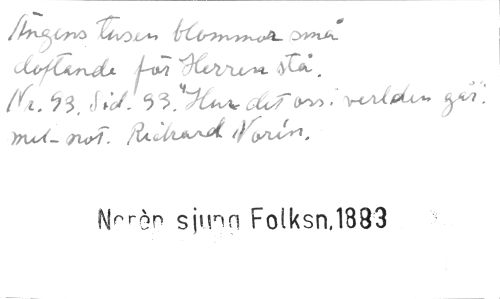 Ängens tusen blommor små
doftande för Herren stå.
Nr. 93. Sid. 93. "Hur det oss i verlden går".
mel-not. Richard Norén.
Norèn sjung Folksn, 1883